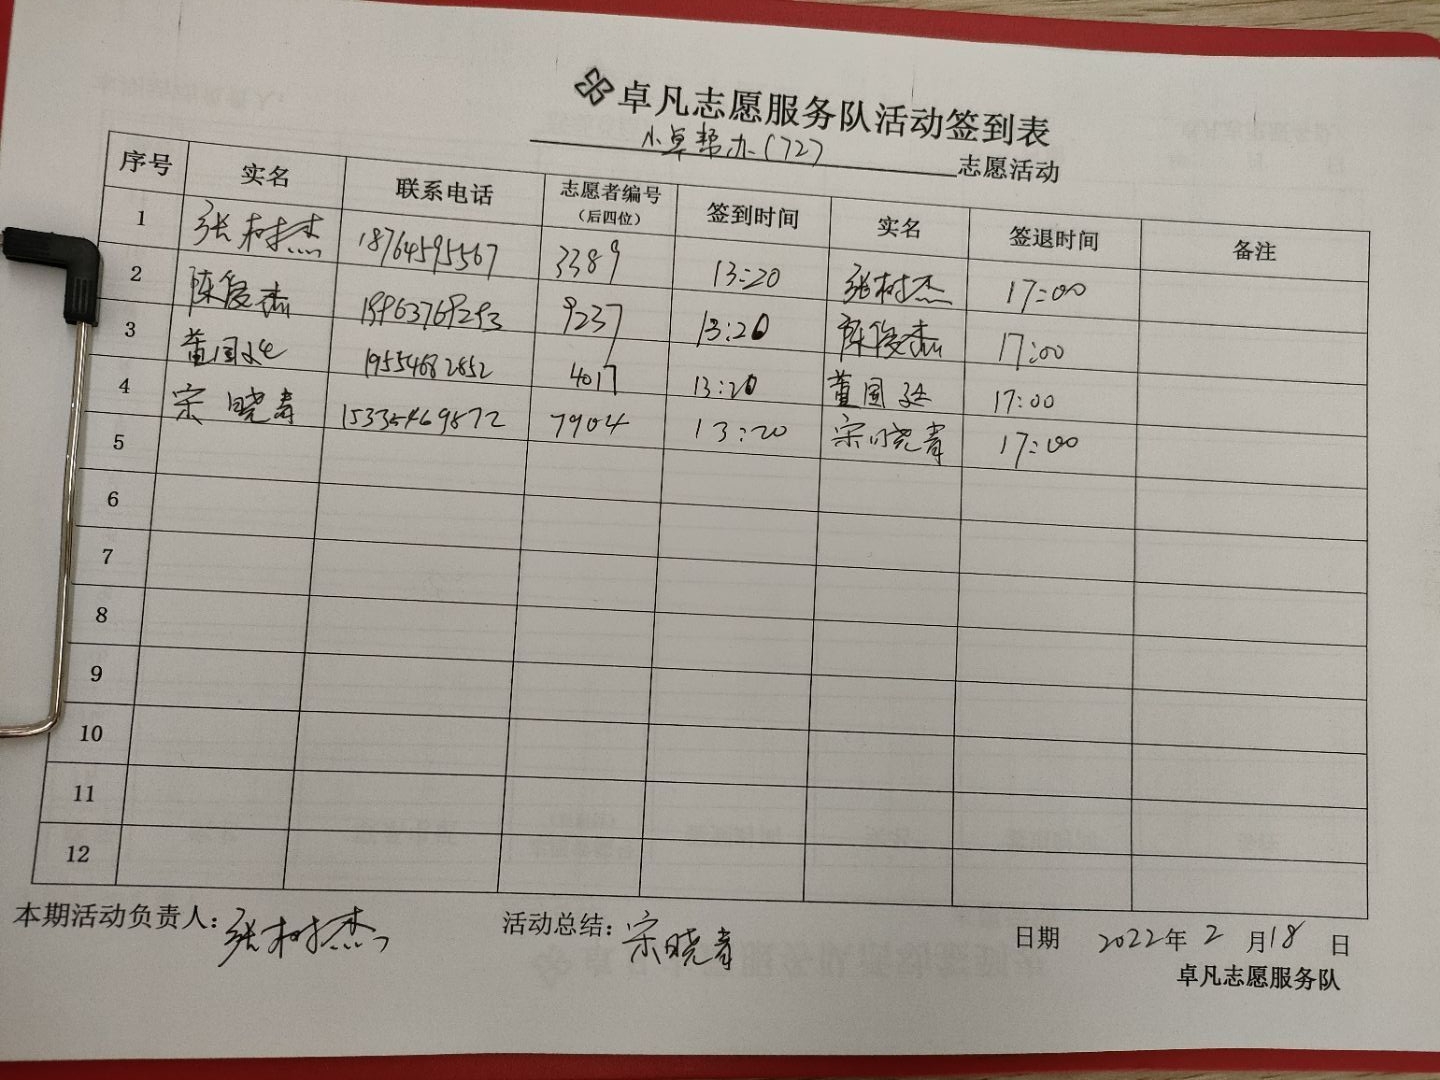 卓凡志愿服务队活动签到表
小卓帮办(72) 志愿活动
序号 实名 联系电话 志愿者编号(后四位) 签到时间 实名 签退时间 备注
1 张树杰 18764595567 3389 13:20 张树杰 17:00
2 陈俊杰 9237 13:20 陈俊杰 17:00
3 董国 19554682852 4017 13:20 董国 17:00
4 宋晓青 15335469872 7904 13:20 宋晓青 17:00
5
6
7
8
9
10
11
12
本期活动负责人: 张树杰 活动总结: 宋晓青 日期 2022年2月18日
卓凡志愿服务队